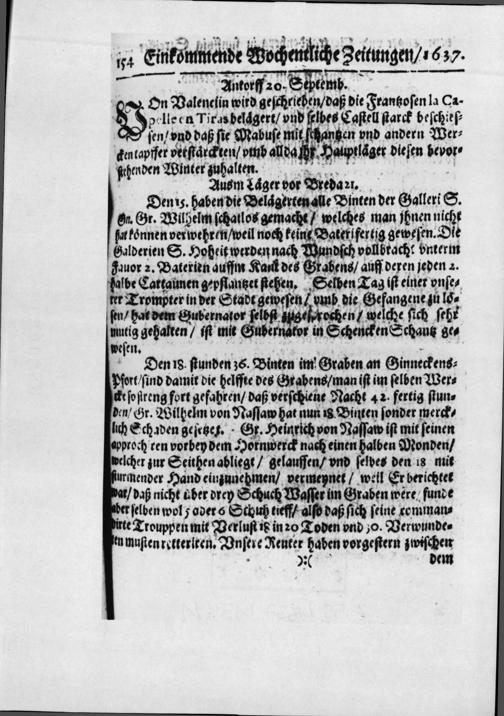 154 Einkommende Wochentliche Zeitungen/1637.
Antorff 20. Septemb.
VOn Valenclin wird geschrieben/daß die Frantzosen la Ca-
pelle en Tiras belägert/ vnd selbes Castell starck beschies-
sen/vnd daß sie Mabuse mit schantzen vnd andern Wer-
cken tapffer verstärckten/ vmb allda jhr Hauptläger diesen bevor-
stehenden Winter zuhalten.
Ausm Läger vor Breda 21.
Den 15. haben die Belägerten alle Binten der Galleri S.
Gn. Gr. Wilhelm schatlos gemacht/ welches man jhnen nicht
hat können verwehren/weil noch keine Bateri fertig gewesen. Die
Galderien S. Hoheit werden nach Wundsch vollbracht vnterm
Favor 2. Baterien auffm Kant des Grabens/ auff deren jeden 2.
halbe Cartaunen gepflantzet stehen. Selben Tag ist einer vnse-
rer Trompter in der Stadt gewesen/ vmb die Gefangene zu lö-
sen/ hat dem Gubernator selbst zugesprochen/ welche sich sehr
mutig gehalten/ ist mit Gubernator in Schencken Schantz ge-
wesen.
Den 18. stunden 36. Binten im Graben an Ginneckens-
Pfort/sind damit die helffte des Grabens/man ist im selben Wer-
cke so streng fort gefahren/ daß verschiene Nacht 42. fertig stun-
den/ Gr. Wilhelm von Nassaw hat nun 18 Binten sonder merck-
lich Schaden gesetzet. Gr. Heinrich von Nassaw ist mit seinen
approchen vorbey dem Hornwerck nach einen halben Monden/
welcher zur Seithen abliegt/ gelauffen/ vnd selbes den 18 mit
stürmender Hand einzunehmen/ vermeynet/ weil Er berichtet
war/ daß nicht über drey Schuch Wasser im Graben were/ funde
aber selben wol 5 oder 6 Schuh tieff/ also daß sich seine comman-
dirte Trouppen mit Verlust 18 in 20 Toden vnd 30. Verwunde-
ten musten retteriren. Vnsere Reuter haben vorgestern zwischen
):( dem